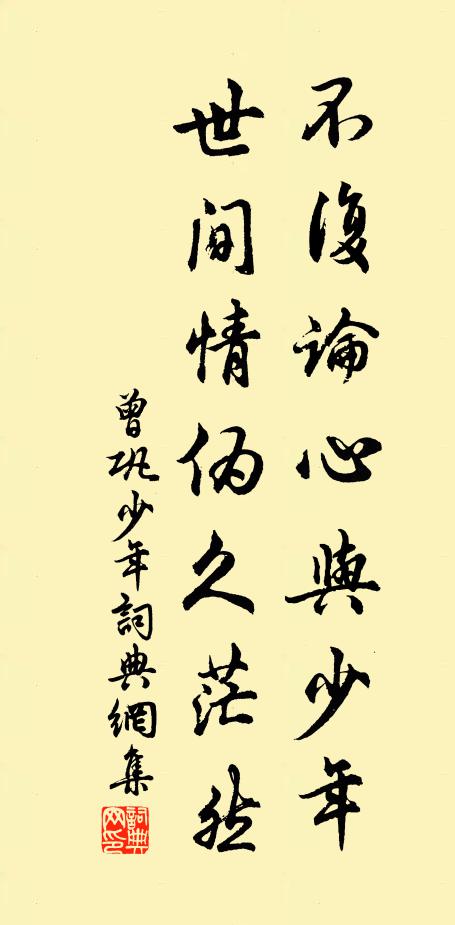 不復論心與少年
世間情偽久茫然
曾巩少年詞典網集
詞典網印